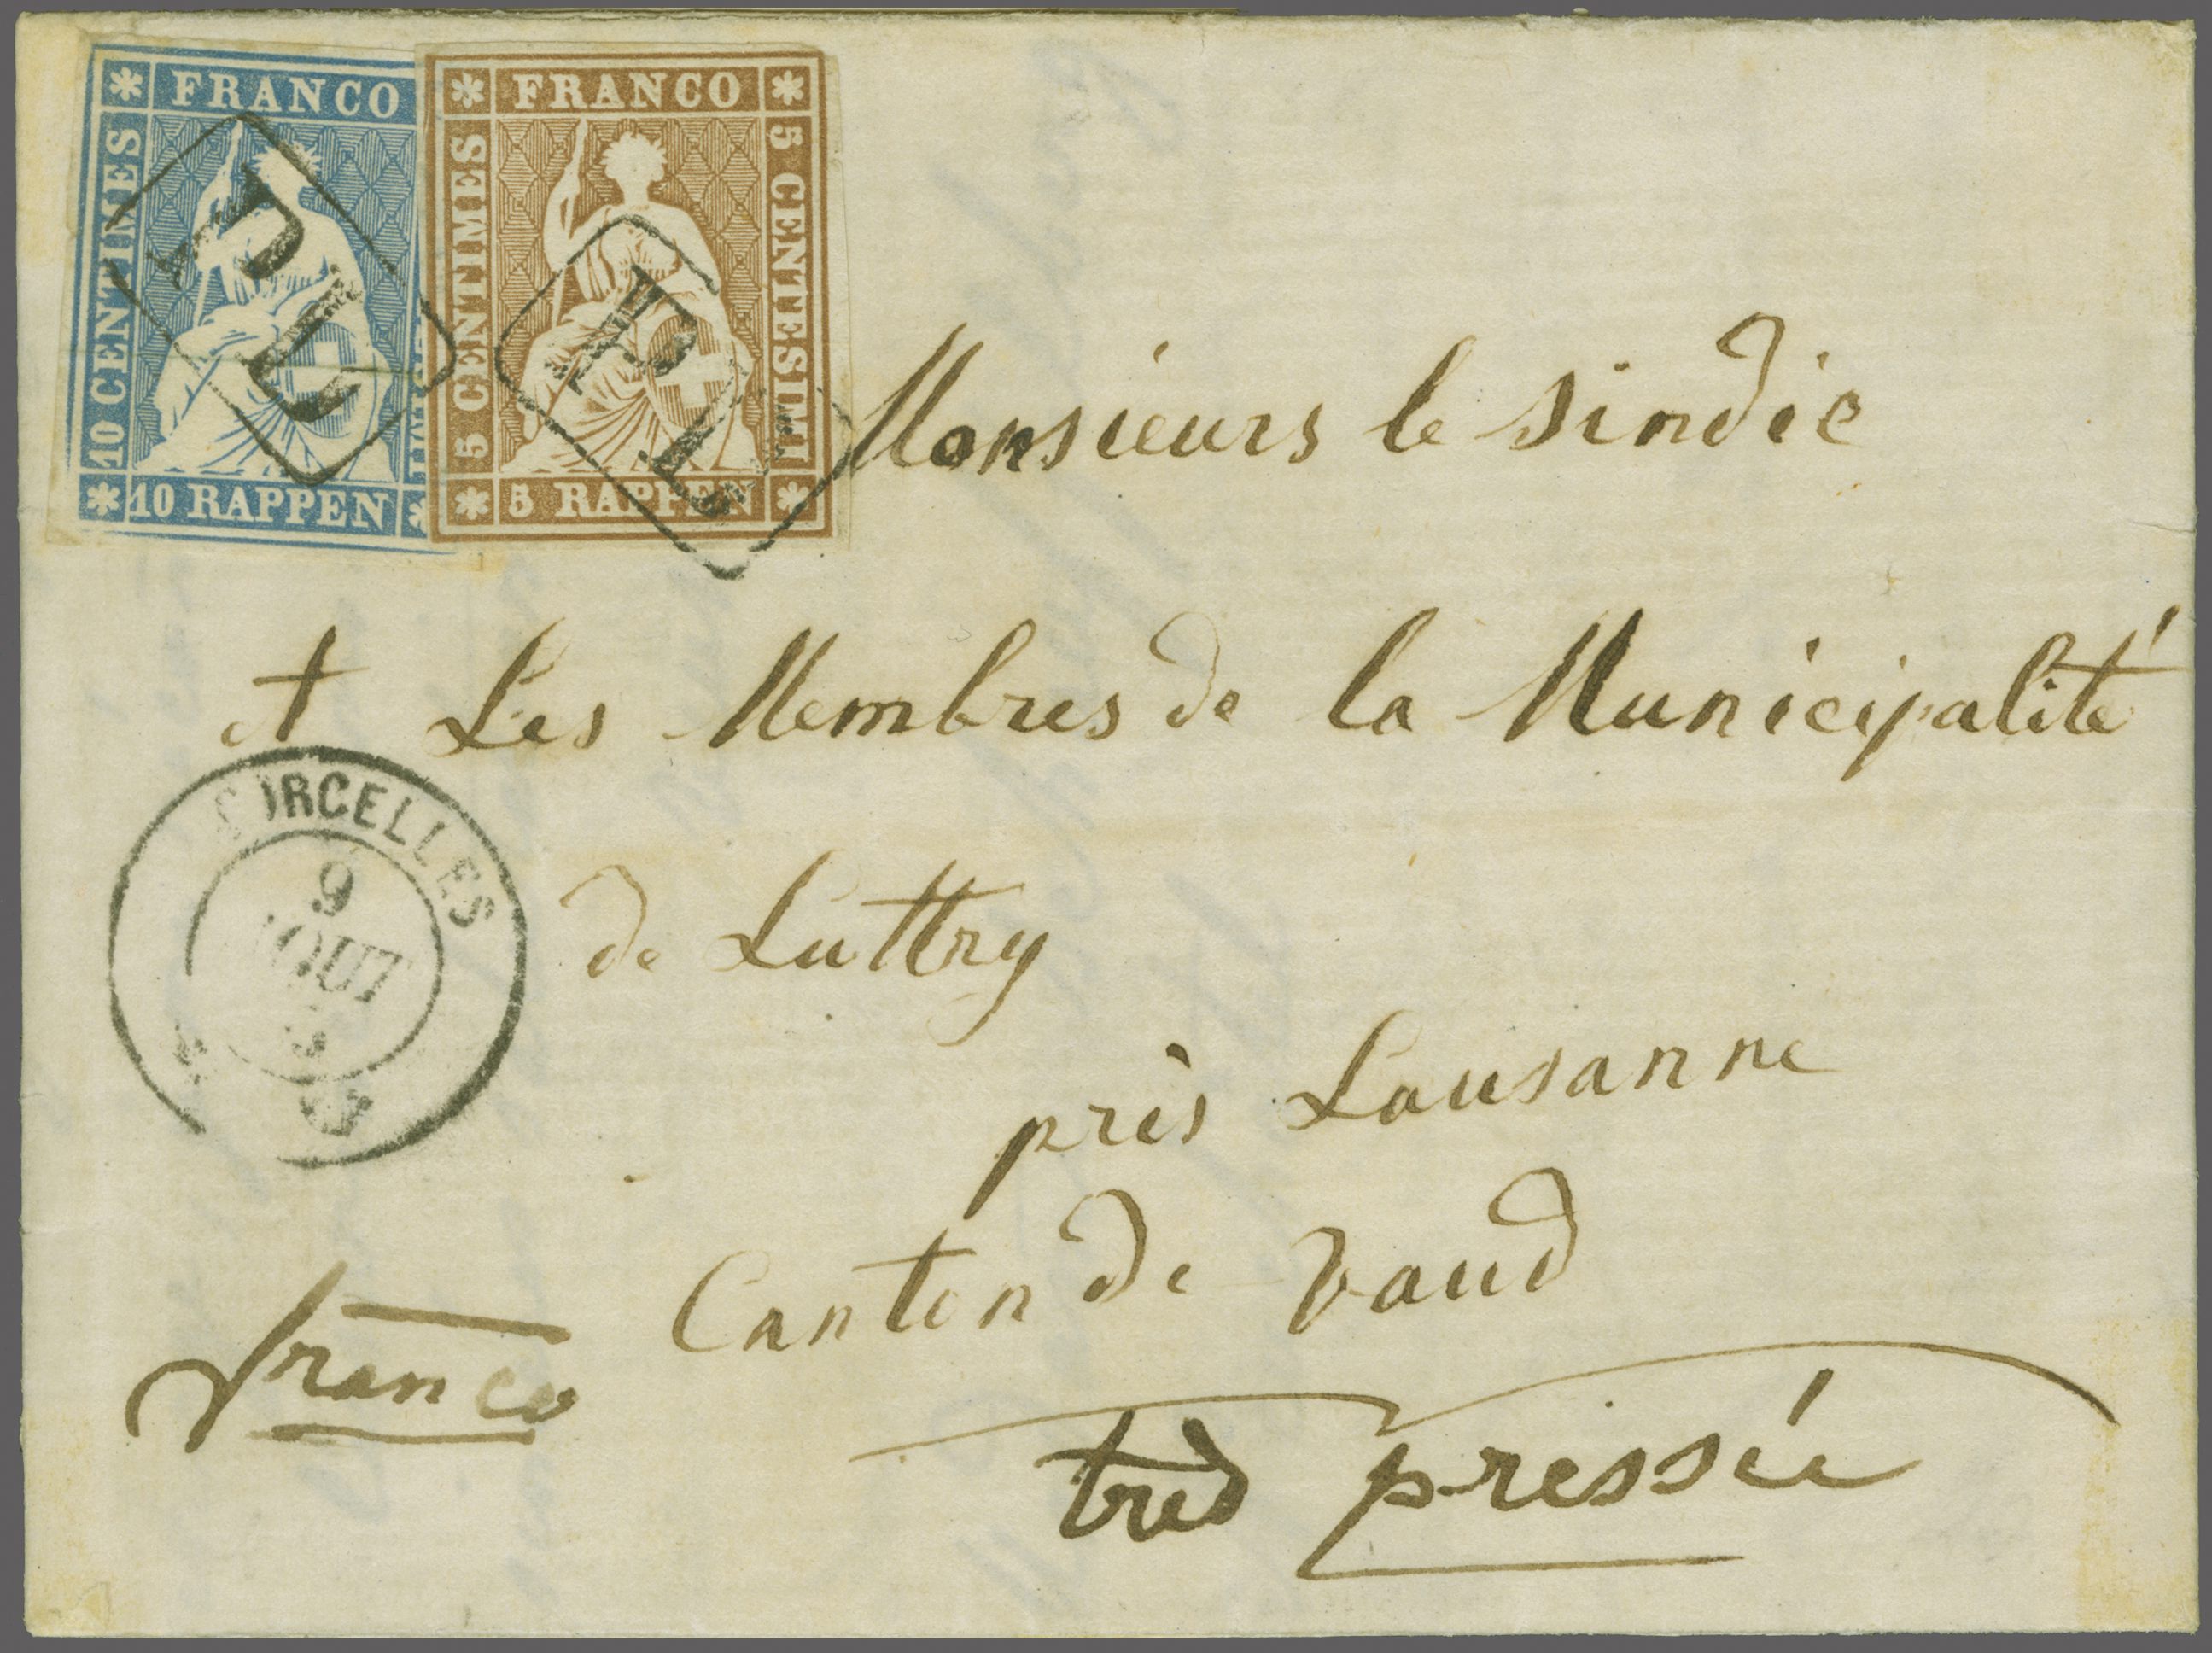 FRANCO
10 CENTIMES
10 RAPPEN
PD
FRANCO
5 CENTIMES
5 CENTESIMI
5 RAPPEN
PD
Monsieurs le Sindic
et Les Membres de la Municipalité
CORCELLES
9
AOUT
de Luttry
près Lausanne
Canton de Vaud
franco
très pressée